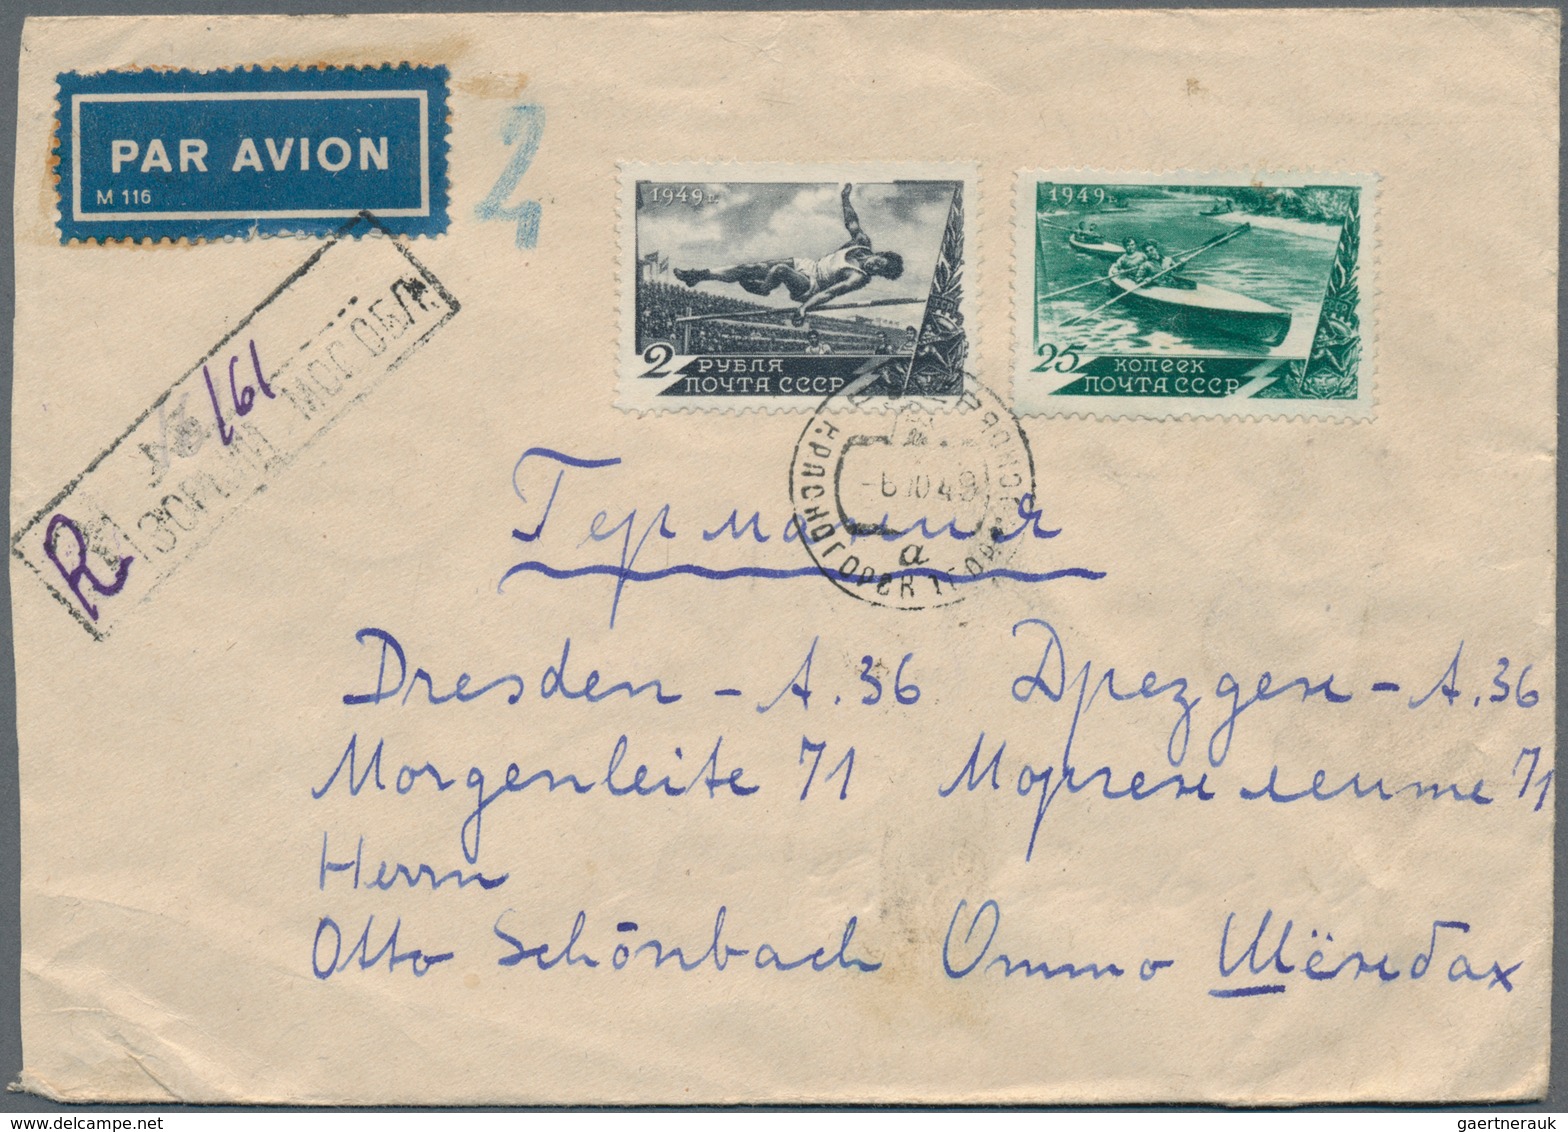 PAR AVION
M 116
2
1949г.
2 РУБЛЯ
ПОЧТА СССР
1949г.
25 КОПЕЕК
ПОЧТА СССР
R
161
МОС ОБЛ
КРАСНОГОРСК
-6 10 49
а
Германия
Dresden - A. 36 Дрезден - А. 36
Morgenleite 71 Моргенлеите 71
Herrn
Otto Schönbach Отто Шёнбах
gaertnerauk